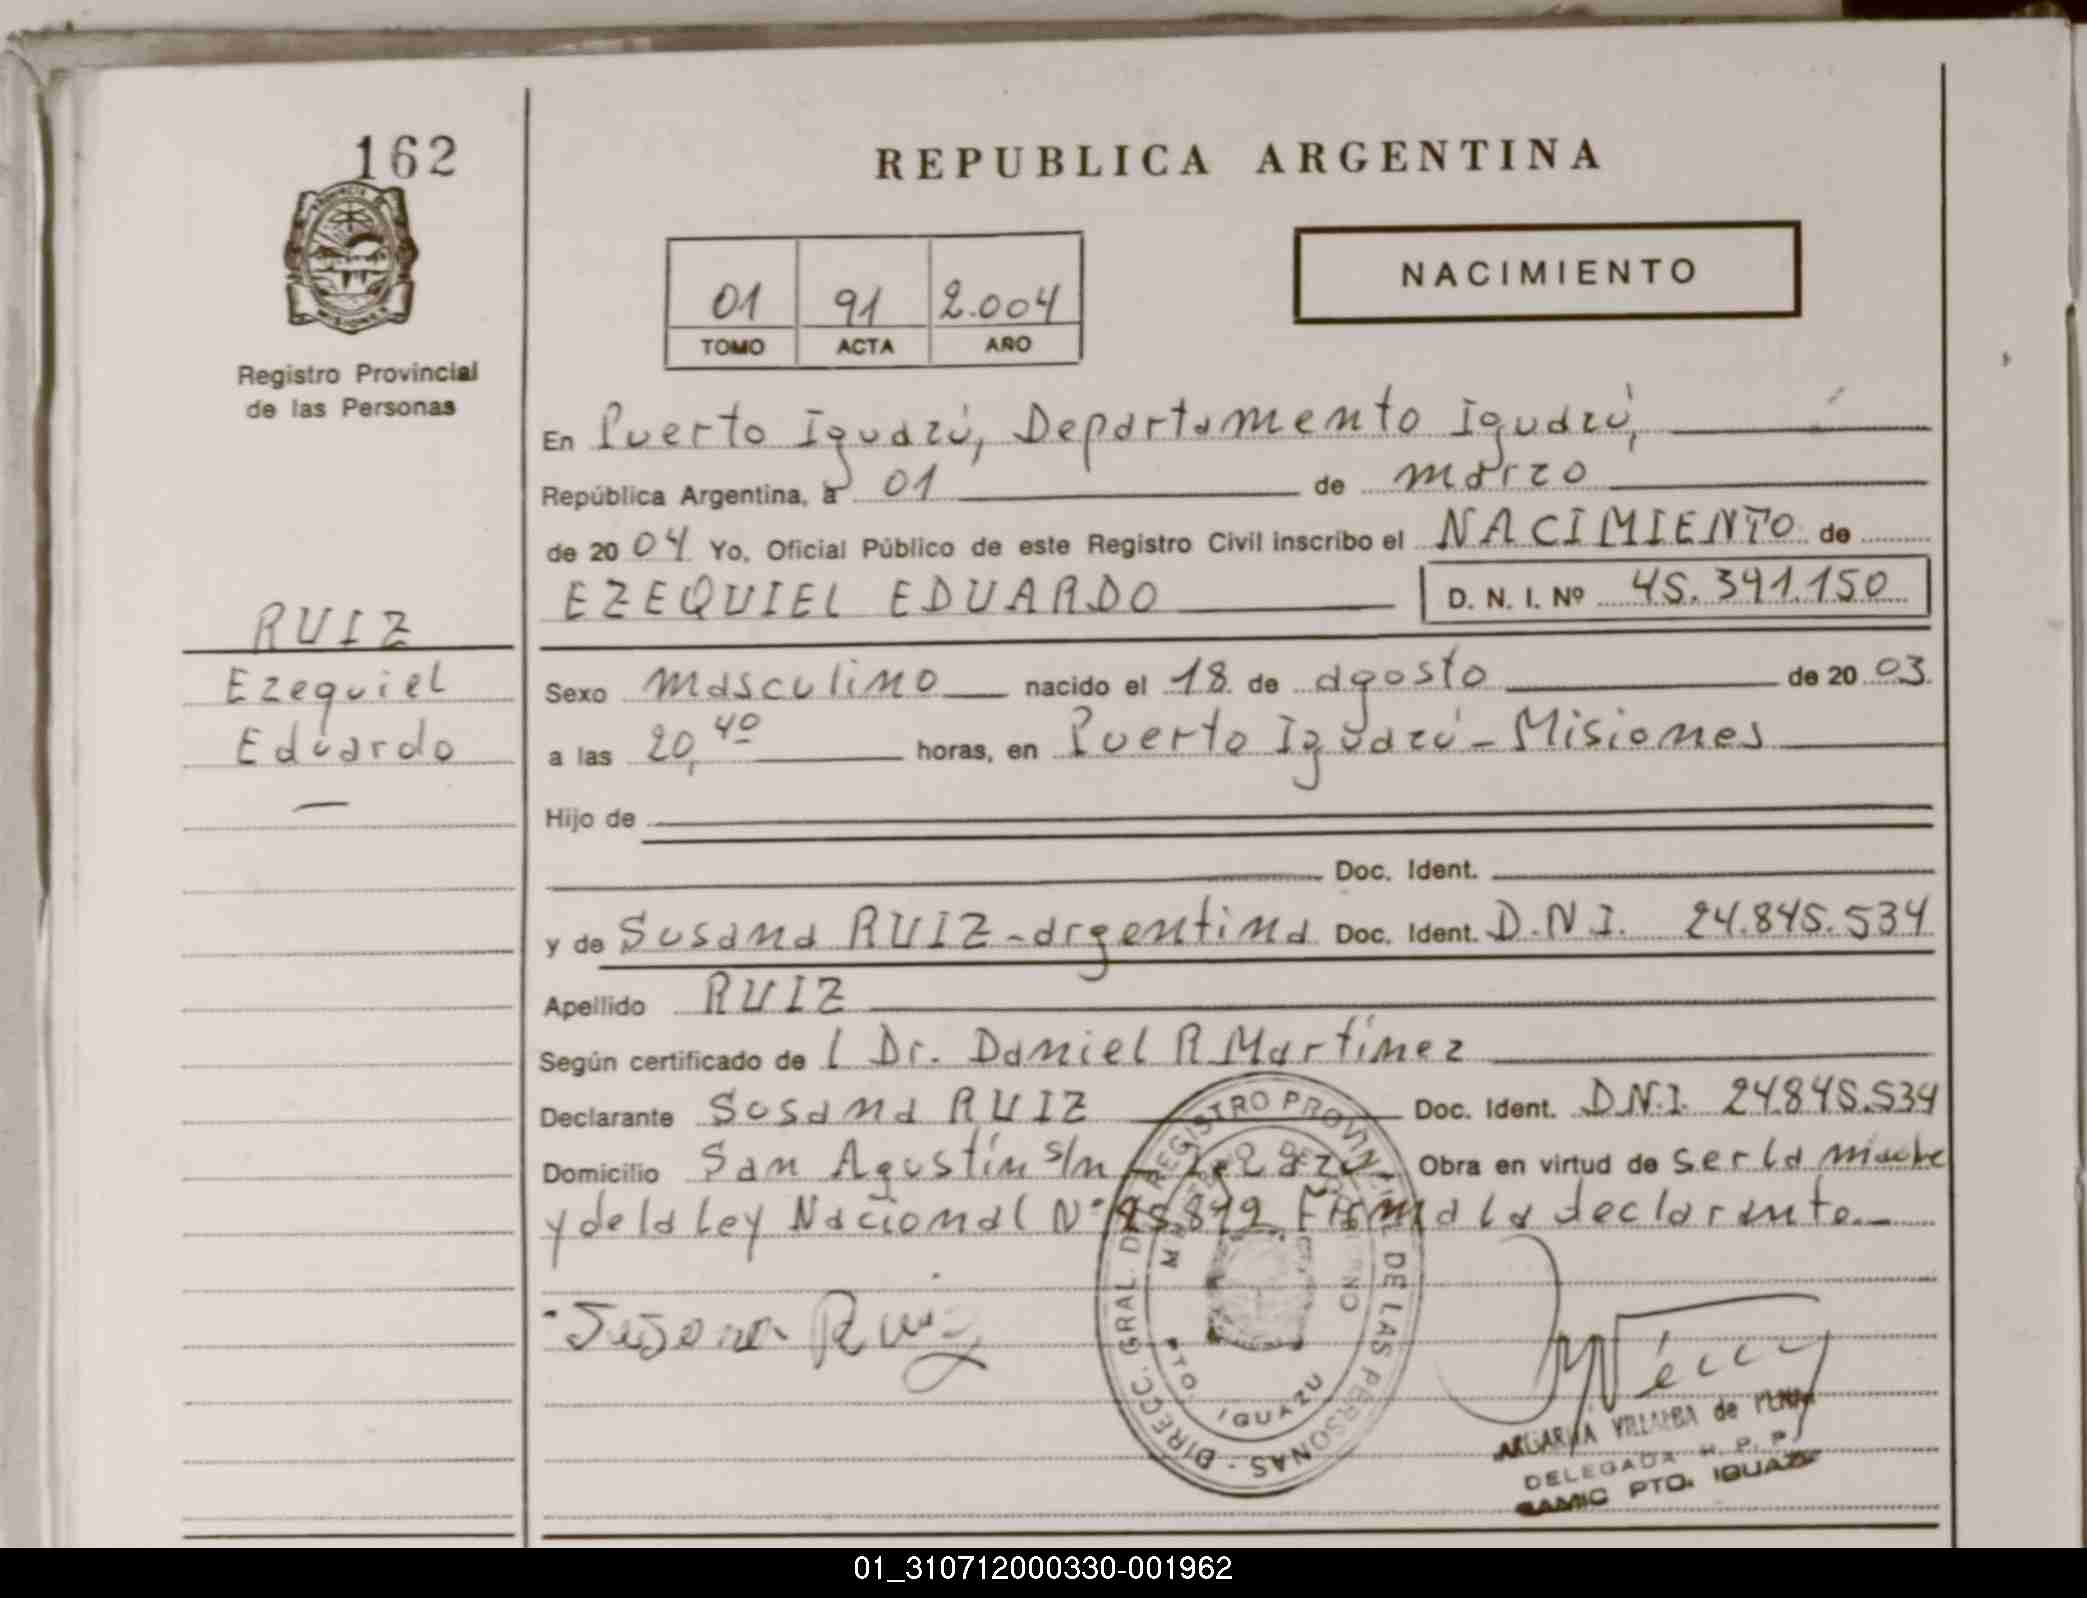 162
REPUBLICA ARGENTINA
NACIMIENTO
01 91 2.004
TOMO ACTA AÑO
Registro Provincial
de las Personas
En Puerto Iguazú, Departamento Iguazú,
República Argentina, a 01 de marzo
de 2004 Yo, Oficial Público de este Registro Civil inscribo el NACIMIENTO de
EZEQUIEL EDUARDO D. N. I. Nº 45.391.150
RUIZ
Ezequiel
Eduardo
Sexo masculino nacido el 18 de agosto de 2003
a las 20,40 horas, en Puerto Iguazú - Misiones
Hijo de
Doc. Ident.
y de Susana RUIZ - argentina Doc. Ident. D.N.I. 24.845.534
Apellido RUIZ
Según certificado de l Dr. Daniel R Martínez
Declarante Susana RUIZ Doc. Ident. D.N.I. 24.845.534
Domicilio San Agustín s/n Obra en virtud de ser la madre
y de la Ley Nacional Nº Firma la declarante.
Susana Ruiz
DIRECC. GRAL. DEL REGISTRO PROVINCIAL DE LAS PERSONAS
PTO. IGUAZU
VILLALBA de
DELEGADA R. P. P.
SAMIC PTO. IGUAZU
01_310712000330-001962